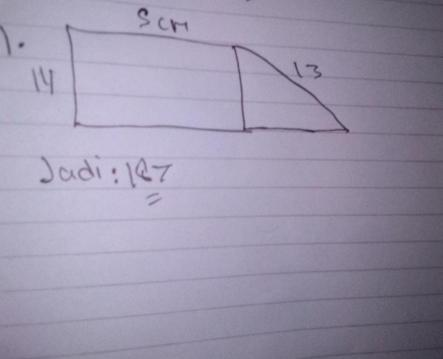 1.
5 cm
14
13
Jadi : 187